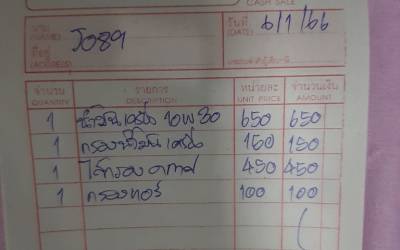 CASH SALE
นาม
(NAME) วอ89
วันที่
(DATE) 6/1/66
ที่อยู่
(ADDRESS)
จำนวน รายการ หน่วยละ จำนวนเงิน
QUANTITY DESCRIPTION UNIT PRICE AMOUNT
1 น้ำมันเครื่อง 10W30 650 650
1 กรองน้ำมันเครื่อง 150 150
1 ไส้กรองอากาศ 450 450
1 กรองแอร์ 100 100